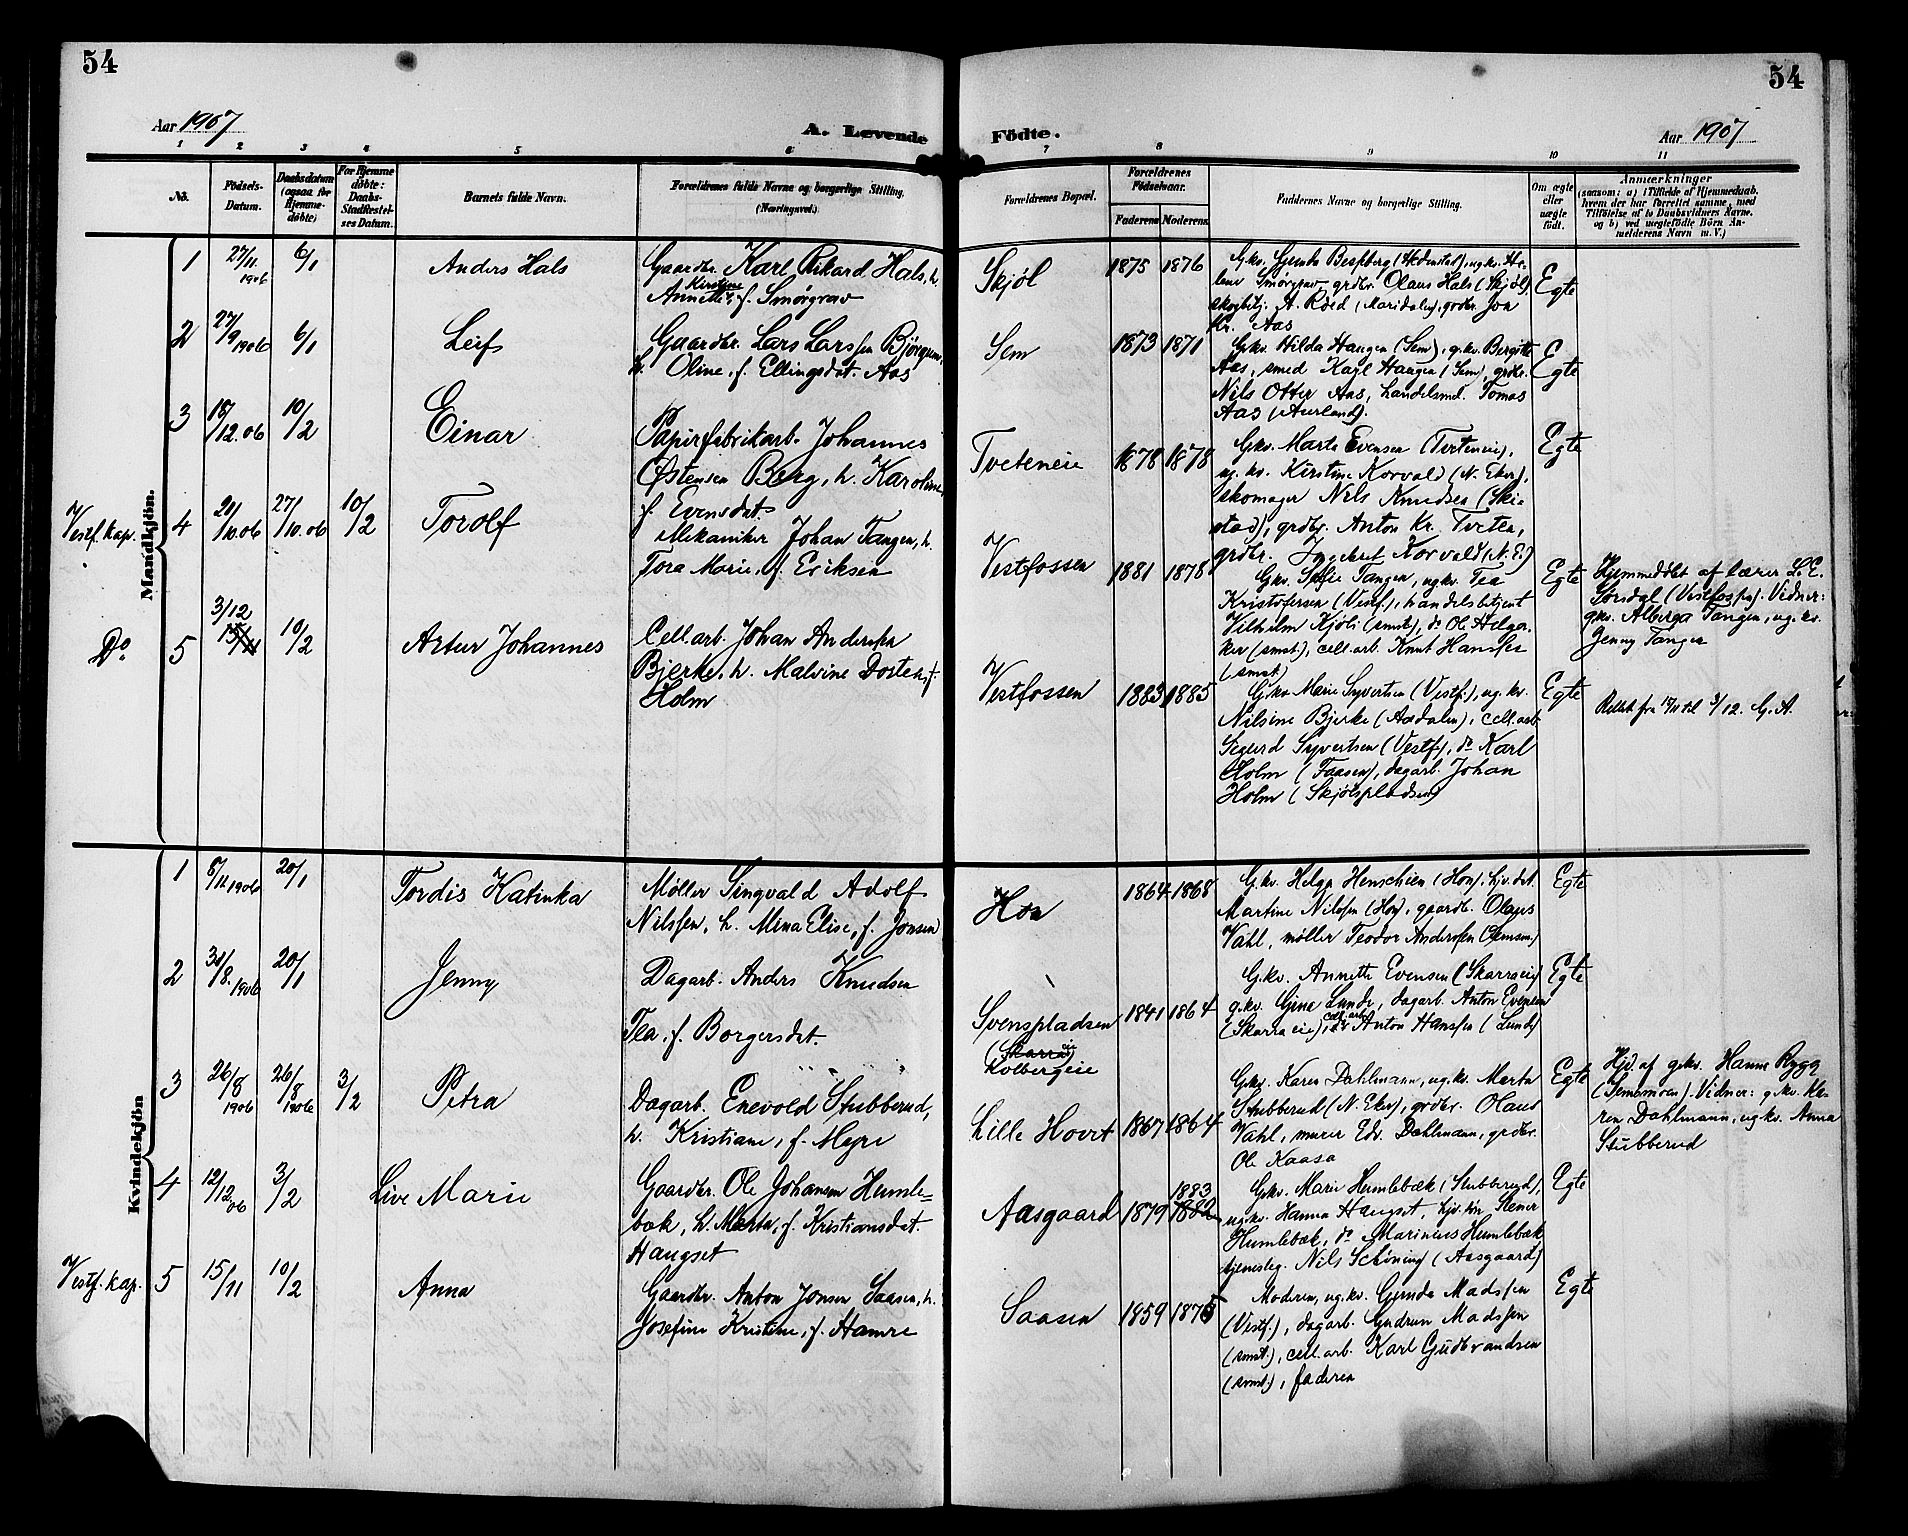 54
54
Aar 1907
A. Levende
Födte.
Aar 1907
1 2 3 4 5 6 7 8 9 10 11
No.
Födsels-
Datum.
Daabsdatum
(ogsaa for
Hjemme-
döbte)
For Hjemme
döbte:
Daabs-
Stadfæstel-
ses Datum.
Barnets fulde Navn.
Forældrenes fulde Navne og borgerlige Stilling.
(Næringsvei.)
Forældrenes Bopæl.
Forældrenes
Födselsaar.
Faderens Moderens
Faddernes Navne og borgerlige Stilling.
Om ægte
eller
uægte
födt.
Anmærkninger
(saasom: a) i Tilfælde af Hjemmedaab,
hvem der har forrettet samme, med
Tilföielse af to Daabsvidners Navne,
og b) ved uegtefödte Börn An-
melderens Navn m. V.)
Mandkjön.
1 27/11 1906 6/1 Anders Hals
Gaardbr. Karl Rikard Hals, h.
Kirstine
Annette, f. Smørgrav
Skjøl 1875 1876
skogbetj. A. Röed (Maridalen), grdbr. Jon
Kr. Aas
Egte
2 27/9 1906 6/1 Leif
Gaardbr. Lars Larssen Bjørgum,
h. Oline, f. Ellingsdat. Aas
Sem 1873 1871
Gkv. Hilda Haugen (Sem), gkv. Bergitte
Aas, smed Karl Haugen (Sem), grdbr.
Nils Otter Aas, handelsmd. Tomas
Aas (Aurland).
Egte
3 18/12.06 10/2 Einar
Papirfabrikarb. Johannes
Østensen Berg, h. Karoline,
f. Evensdat.
Tveteneie 1878 1878
Gkv. Marte Evensen (Tveteneie),
ug. kv. Kirstine Korvald (N. Eker),
skomager Nils Knudsen (Skie
stad), grdbr. Anton Kr. Tveten,
grdbr. Korvald (N. E.)
Egte
Vestf. kap. 4 20/10.06 27/10.06 10/2 Torolf
Mekaniker Johan Tangen, h.
Tora Marie, f. Eriksen
Vestfossen 1881 1878
Gkv. Sofie Tangen, ugkv. Tea
Kristofersen (Vestf.), handelsbetjent
Vilhelm Kjöls (smst), do Ole Helga-
ker (smst), cell. arb. Knut Hansen
(smst)
Egte
Hjemmedøbt af lærer L. E.
Sørsdal (Vestfossen). Vidner:
gkv. Alberga Tangen, ug. kv.
Jenny Tangen
Do 5 3/12 15/11 10/2 Artur Johannes
Cell. arb. Johan Anderssen
Bjerke, h. Malvine Dorten, f.
Holm
Vestfossen 1883 1885
Gkv. Marie Syvertsen (Vestf.), ug. kv.
Nilsine Bjerke (Aasdalen), cell. arb.
Sigurd Syvertsen (Vestf.), do Karl
Holm (Faasen), dagarb. Johan
Holm (Skjølspladsen)
Egte
Rettet fra 15/11 til 3/12. G. A.
Kvindekjön
1 8/11 1906 20/1 Tordis Katinka
Møller Singvald Adolf
Nilssen, h. Mina Elise, f. Jonsen
Hon 1864 1868
G. kv. Helga Henschien (Hon), hjv. dat.
Martine Nilssen (Hon), gaardb. Olaus
Vahl, møller Teodor Anderssen
Egte
2 31/8. 1906 20/1 Jenny
Dagarb. Anders Knudsen
Tea, f. Borgersdat.
Svenspladsen
(Skarraeie)
Kolbergeie
1841 1864
G. kv. Annette Evensen (Skarraeie),
g. kv. Gina Lunde, dagarb. Anton Evensen
(Skarraeie), cell. arb. Anton Hanssen (Lunde)
Egte
3 26/8 1906 26/8 1906 3/2 Petra
Dagarb. Enevold Stubberud,
h. Kristiane, f. Myre
Lille Hovet 1867 1864
Gkv. Karen Dahlmann, ug. kv. Marta
Stubberud (N. Eker), grdbr. Olaus
Vahl, murer Edv. Dahlmann, grdbr.
Ole Kaasa
Egte
Hjd. af gkv. Hanna Rygg
(Semsmoen). Vidner: g. kv. Ka-
ren Dahlmann, ug. kv. Anna
Stubberud
4 12/12 06 3/2 Live Marie
Gaardbr. Ole Johansen Humle-
bæk, h. Marta, f. Kristiansdat.
Haugset
Aasgaard 1879 1883 1882
Gkv. Marie Humlebæk (Stubberud),
ug. kv. Hanna Haugset, hjv. sön Stener
Humlebæk, do Marinius Humlebæk
tjenestg. Nils Schöning (Aasgaard)
Egte
Vestf. kap. 5 15/11 10/2 Anna
Gaardbr. Anton Jonsen Saasen, h.
Josefine Kristine, f. Hamre
Saasen 1859 1875
Moderen, ug. kv. Gunda Madssen
(Vestf.), dagarb. Gudrun Madssen
(smst.), cell. arb. Karl Gudbrandsen
(smst.), faderen
Egte